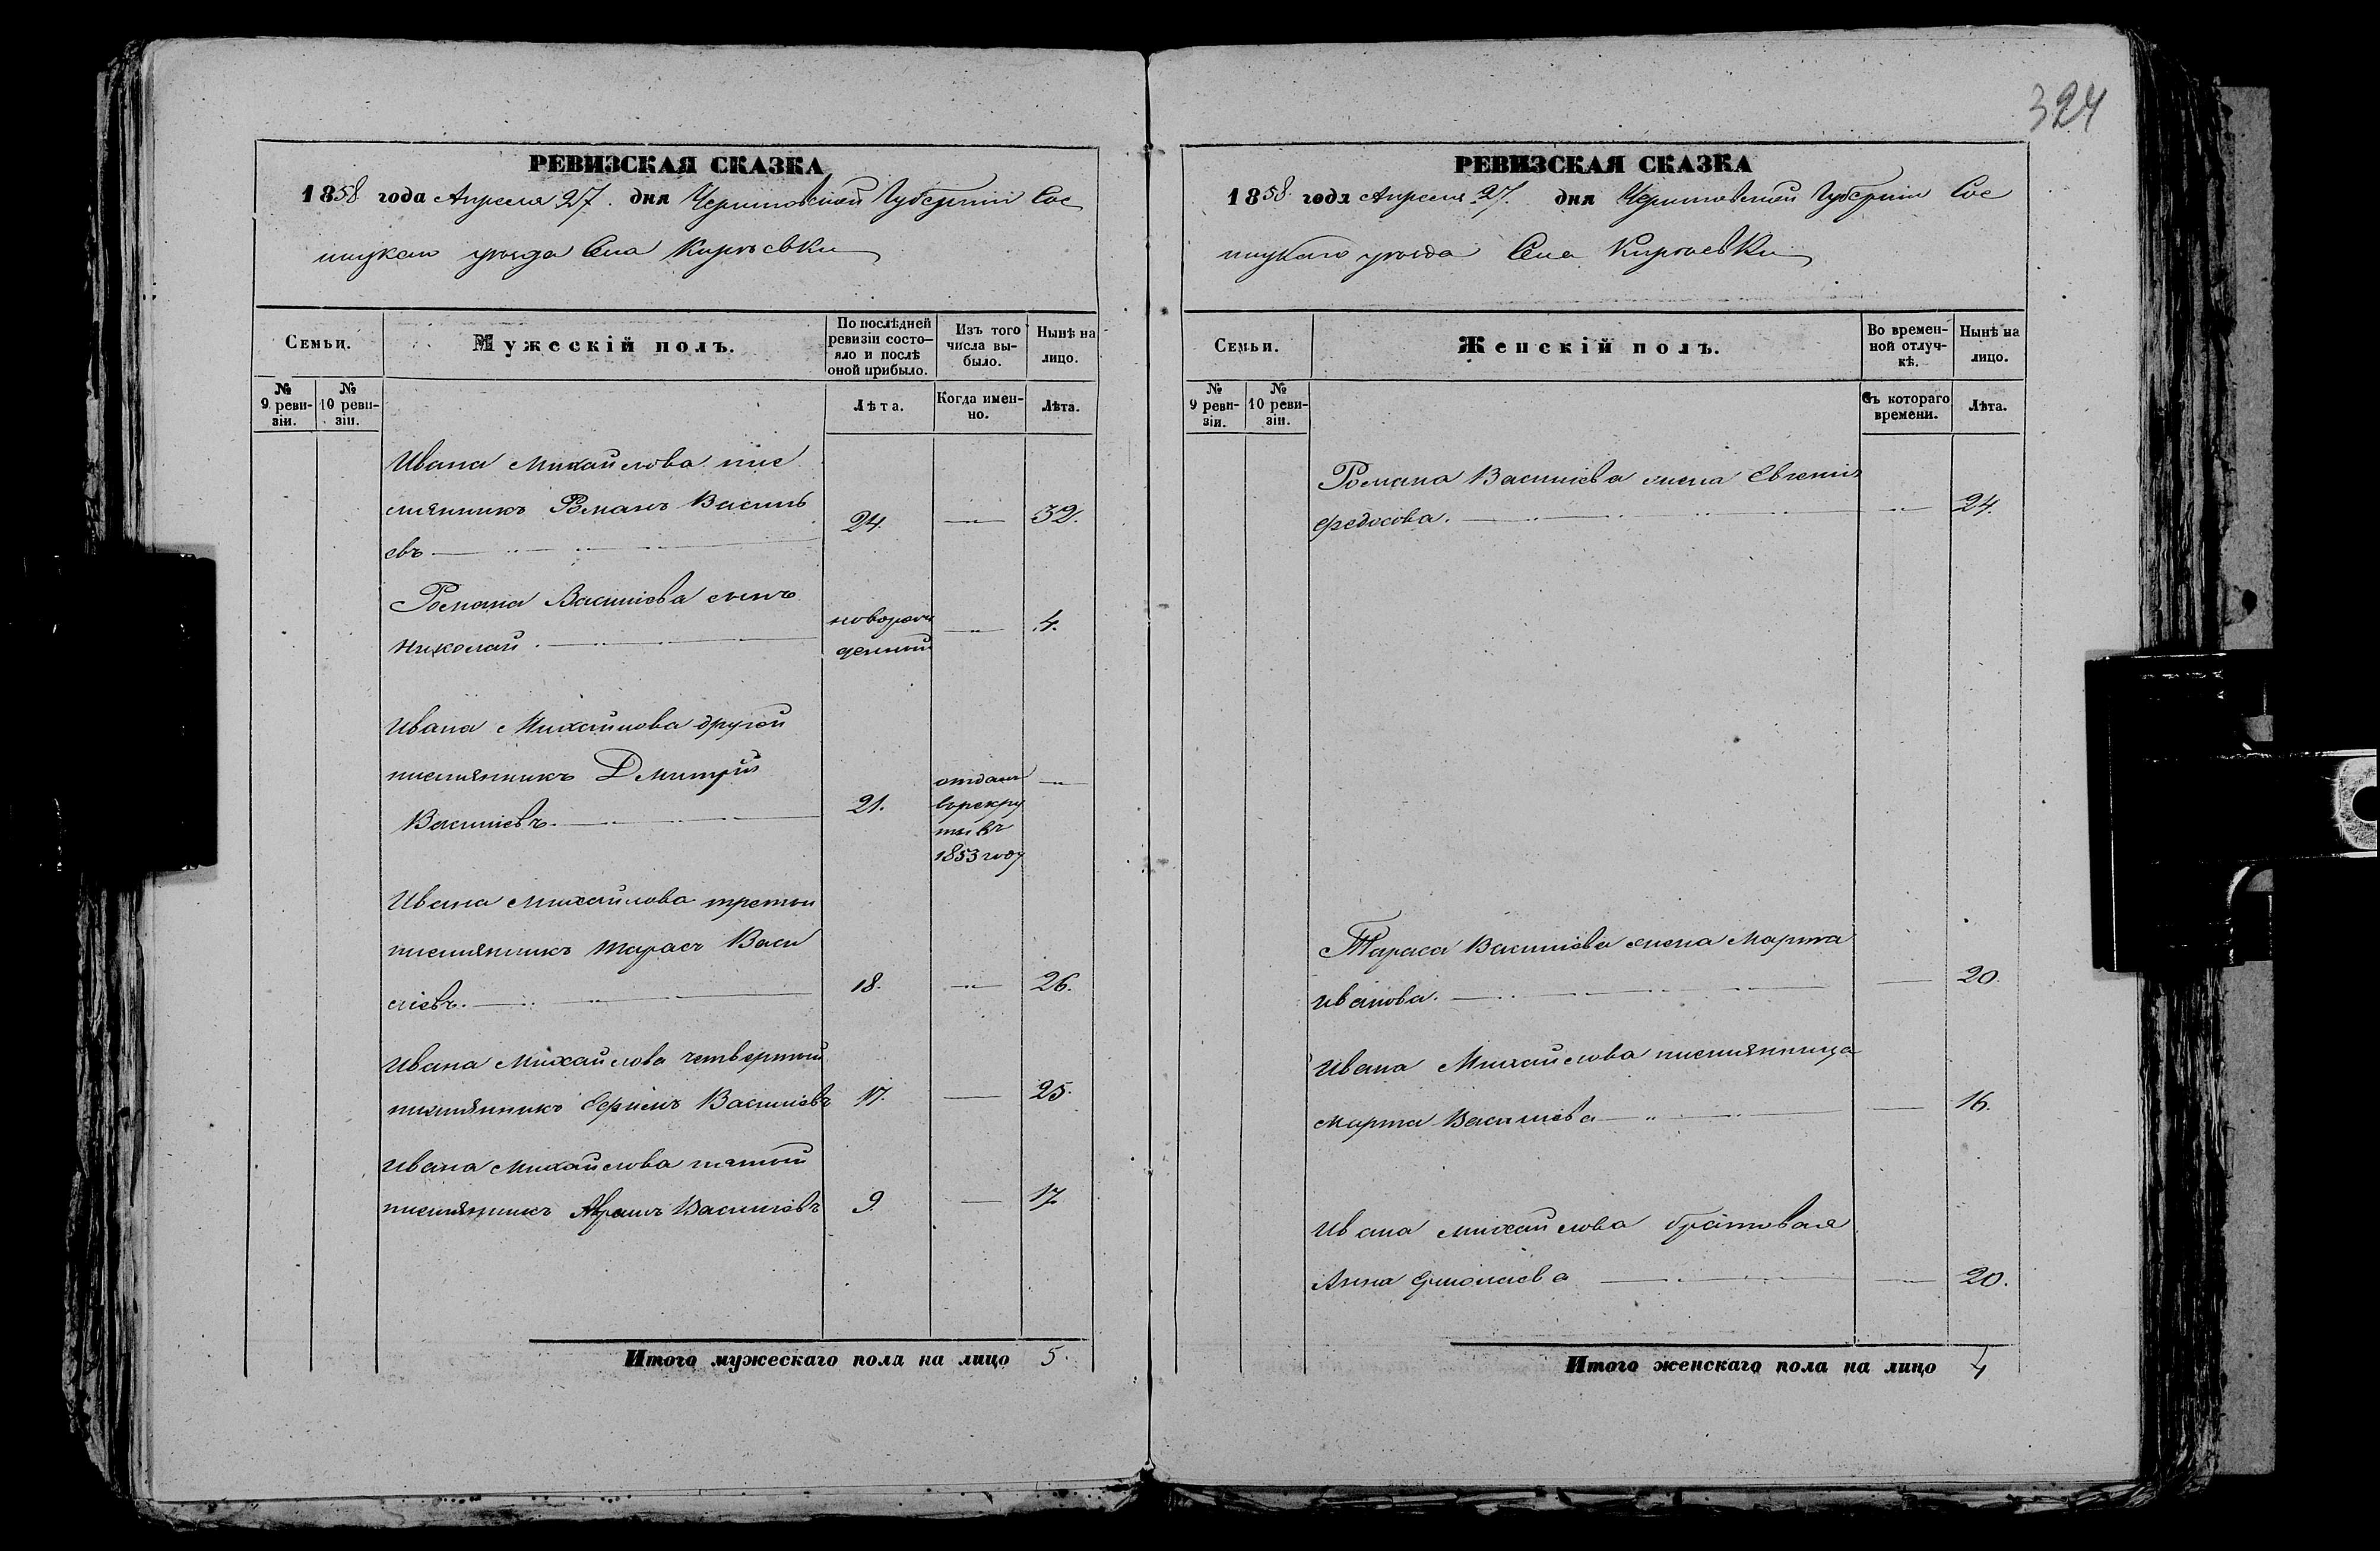 324
РЕВИЗСКАЯ СКАЗКА
1858 года Апреля 27. дня Черниговской Губернии Сос
ницкаго уѣзда Села Кирѣевки
Семьи.
Мужескій полъ.
По послѣдней ревизіи состо-
яло и послѣ
оной прибыло.
Изъ того
числа вы-
было.
Нынѣ на
лицо.
№
9 реви-
зіи.
№
10 реви-
зіи.
Лѣта.
Когда имен-
но.
Лѣта.
Ивана Михайлова пле
мянникъ Романъ Василь
евъ 24. 32.
Романа Василіева сынъ
Николай. новорож
денный 4.
Ивана Михайлова другой
племянникъ Дмитрій
Василіевъ. 21. отданъ
въ рекру
ты въ
1853 году
Ивана Михайлова третій
племянникъ Тарасъ Васи
ліевъ. 18. 26.
Ивана Михайлова четвертый
племянникъ Василіевъ 17. 25.
Ивана Михайлова пятый
племянникъ Василіевъ 9. 17.
Итого мужескаго пола на лицо 5
РЕВИЗСКАЯ СКАЗКА
1858 года Апреля 27. дня Черниговской Губерніи Сос
ницкаго уѣзда Села Кирѣевки
Семьи.
Женскій полъ.
Во времен-
ной отлуч-
кѣ.
Нынѣ на
лицо.
№
9 реви-
зіи.
№
10 реви-
зіи.
Съ котораго
времени.
Лѣта.
Романа Василіева жена Евгенія
Федосова. 24.
Тараса Василіева жена Марта
Иванова. 20.
Ивана Михайлова племянница
Марта Василіева 16.
Ивана Михайлова братовая
Анна 20.
Итого женскаго пола на лицо 4